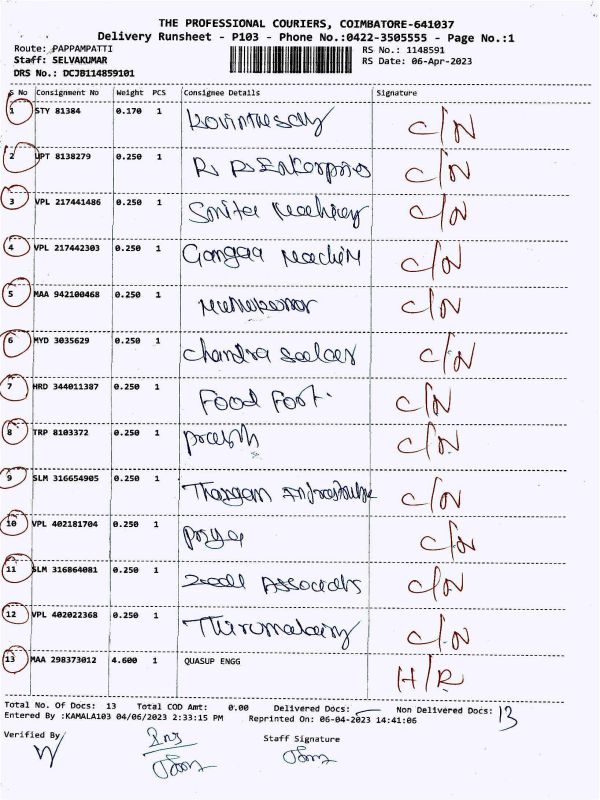 THE PROFESSIONAL COURIERS, COIMBATORE-641037
Delivery Runsheet - P103 - Phone No.:0422-3505555 - Page No.:1
Route: PAPPAMPATTI RS No.: 1148591
Staff: SELVAKUMAR RS Date: 06-Apr-2023
DRS No.: DCJB114859101
S No Consignment No Weight PCS Consignee Details Signature
1 STY 81384 0.170 1 C/N
2 UPT 8138279 0.250 1 C/N
3 VPL 217441486 0.250 1 C/N
4 VPL 217442303 0.250 1 Gangaa C/N
5 MAA 942100468 0.250 1 C/N
6 MYD 3035629 0.250 1 Chandra C/N
7 HRD 344011387 0.250 1 Food Fort. C/N
8 TRP 8103372 0.250 1 C/N
9 SLM 316654905 0.250 1 C/N
10 VPL 402181704 0.250 1 C/N
11 SLM 316864081 0.250 1 Associats C/N
12 VPL 402022368 0.250 1 C/N
13 MAA 298373012 4.600 1 QUASUP ENGG H/R
Total No. Of Docs: 13 Total COD Amt: 0.00 Delivered Docs: — Non Delivered Docs: 13
Entered By :KAMALA103 04/06/2023 2:33:15 PM Reprinted On: 06-04-2023 14:41:06
Verified By Staff Signature